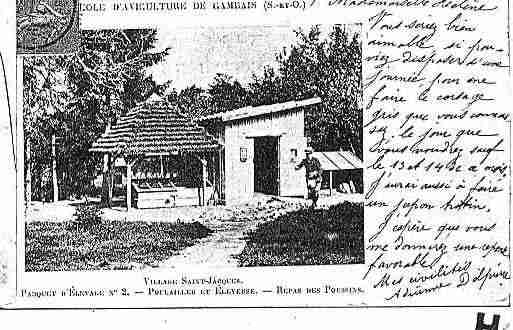 COLE D'AVICULTURE DE GAMBAIS (S.-ET-O.)
Mademoiselle Hélène
Vous seriez bien
aimable si pou-
viez disposer d'une
journée pour me
faire le corsage
gris que vous connais-
sez, le jour que
vous voudrez sauf
le 13 et 14 de ce mois,
J'aurai aussi à faire
un jupon
J'espère que vous
me donnerez une réponse
favorable
Mes civilités
Adrienne
VILLAGE SAINT-JACQUES.
PARQUET D'ÉLEVAGE N° 2. — POULAILLER ET ÉLEVEUSE. — REPAS DES POUSSINS.
H